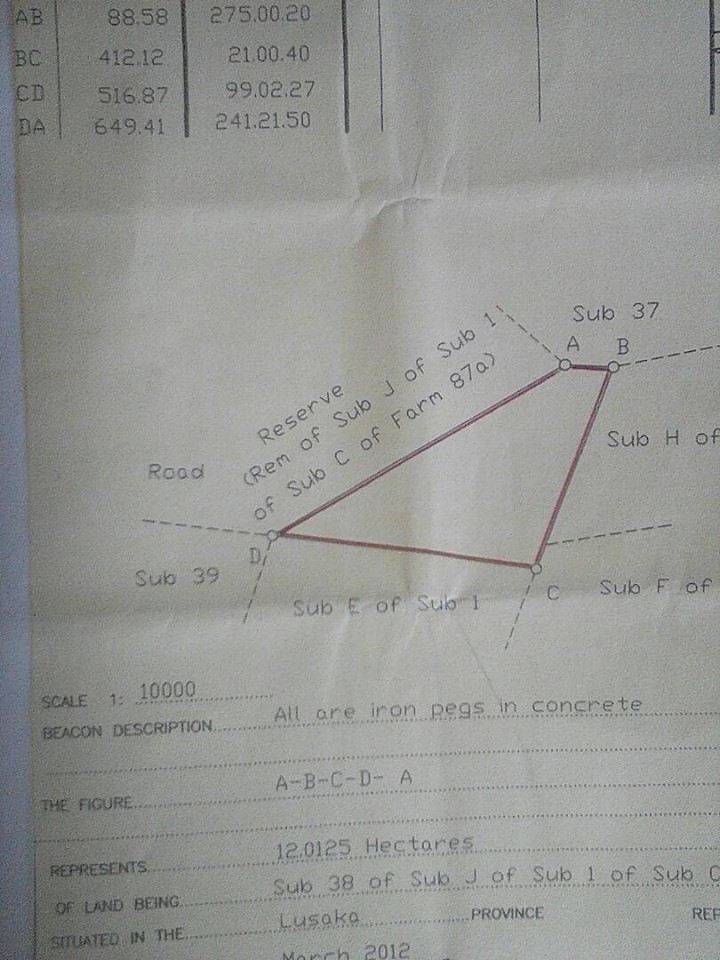 AB 88.58 275.00.20
BC 412.12 21.00.40
CD 516.87 99.02.27
DA 649.41 241.21.50
Sub 37
A B
Reserve
(Rem of Sub J of Sub 1
of Sub C of Farm 87a)
Sub H of
Road
D
Sub 39
Sub E of Sub 1
C
Sub F of
SCALE 1: 10000
BEACON DESCRIPTION All are iron pegs in concrete
THE FIGURE A-B-C-D- A
REPRESENTS 12.0125 Hectares
OF LAND BEING Sub 38 of Sub J of Sub 1 of Sub C
SITUATED IN THE Lusaka PROVINCE REP
March 2012